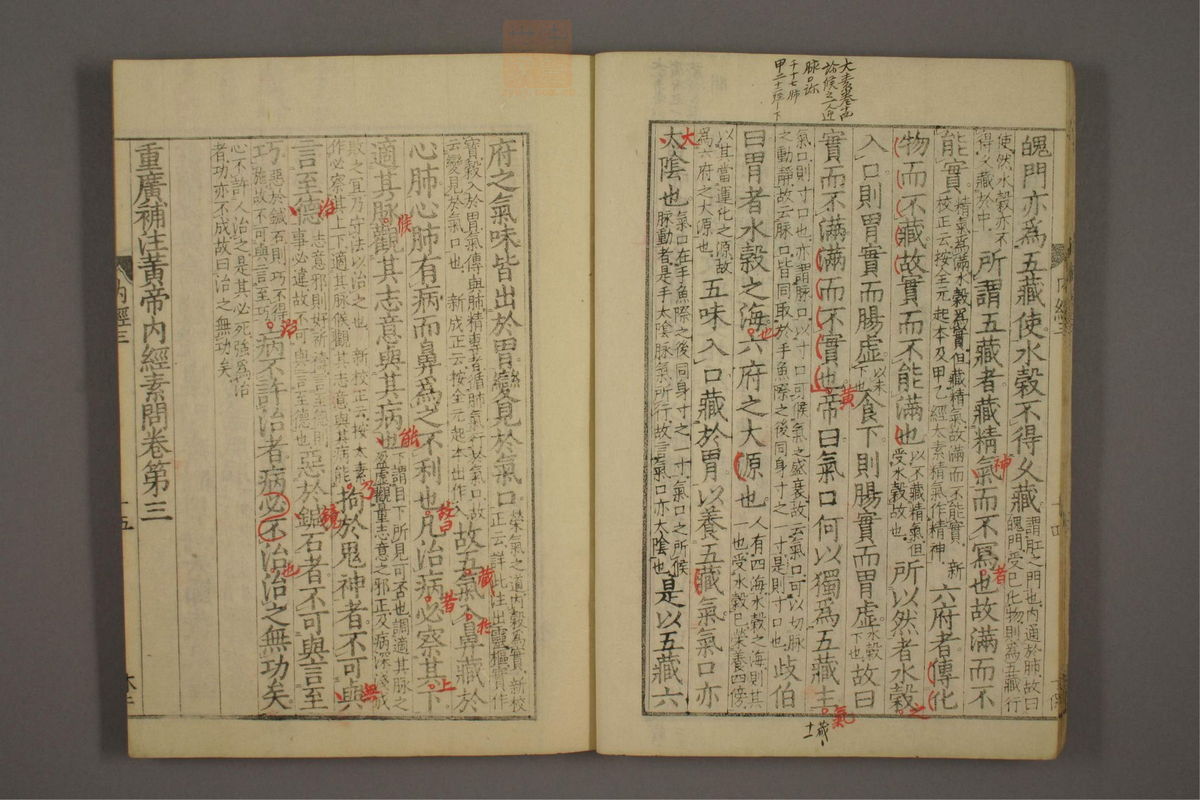 魄門亦為五藏使水穀不得久藏謂肛之門也內通於肺故曰魄門受已化物則為五藏行
使然水穀亦不得久藏於中所謂五藏者藏精氣而不寫也故滿而不
能實精氣為滿水穀為實但藏精氣故滿而不能實新校正云按全元起本及甲乙經太素精氣作精神六府者傳化
物而不藏故實而不能滿也以不藏精氣但受水穀故也所以然者水穀
入口則胃實而腸虛以未下也食下則腸實而胃虛水穀下也故曰
實而不滿滿而不實也帝曰氣口何以獨為五藏主
氣口則寸口也亦謂脉口以寸口可候氣之盛衰故云氣口可以切脉之動靜故云脉口皆同取於手魚際之後同身寸之一寸是則寸口也歧伯
曰胃者水穀之海六府之大源也人有四海水穀之海則其一也受水穀已榮養四傍
以其當運化之源故為六府之大源也五味入口藏於胃以養五藏氣氣口亦
太陰也氣口在手魚際之後同身寸之一寸氣口之所候脉動者是手太陰脉氣所行故言氣口亦太陰也是以五藏六
府之氣味皆出於胃變見於氣口榮氣之道內穀為實新校正云詳此注出靈樞實作
寶穀入於胃氣傳與肺精專者循肺氣行於氣口故云變見於氣口也新校正云按全元起本出作入故五氣入鼻藏於
心肺心肺有病而鼻為之不利也凡治病必察其下
適其脉觀其志意與其病也下謂目下所見可否也調適其脉之盈虛觀量志意之邪正及病深淺成
敗之宜乃守法以治之也新校正云按太素作必察其上下適其脉候觀其志意與其病能拘於鬼神者不可與
言至德志意邪則好祈禱言至德則事必違故不可與言至德也惡於鍼石者不可與言至
巧惡於鍼石則巧不得施故不可與言至巧病不許治者病必不治治之無功矣
心不許人治之是其必死強為治者功亦不成故曰治之無功矣
重廣補注黃帝內經素問卷第三
內經三
十五